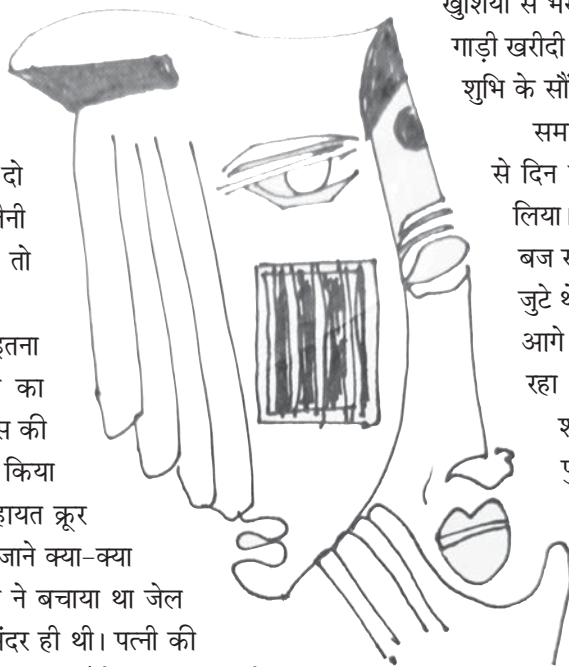 दो
तो
इतना
का
की
किया
क्रूर
जाने क्या-क्या
ने बचाया था जेल
ही थी। पत्नी की
खुशियों से
गाड़ी खरीदी
शुभि के सौं
सम
से दिन
लिया।
बज
जुटे थे
आगे
रहा